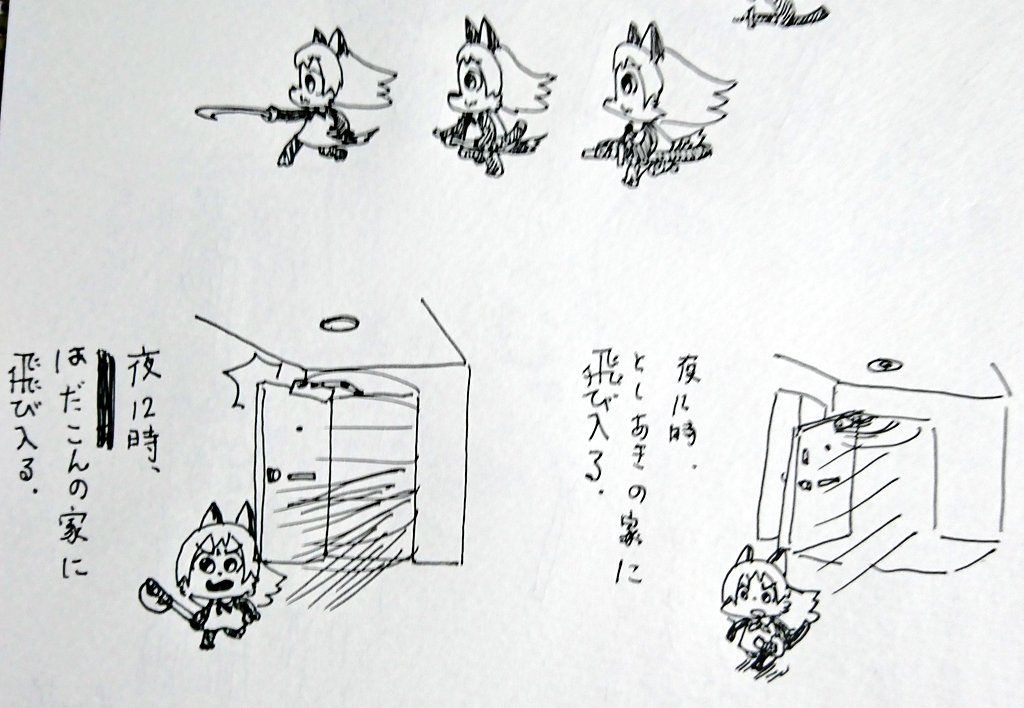 夜12時.
としあきの家に
飛び入る.
夜12時、
はだこんの家に
飛び入る.